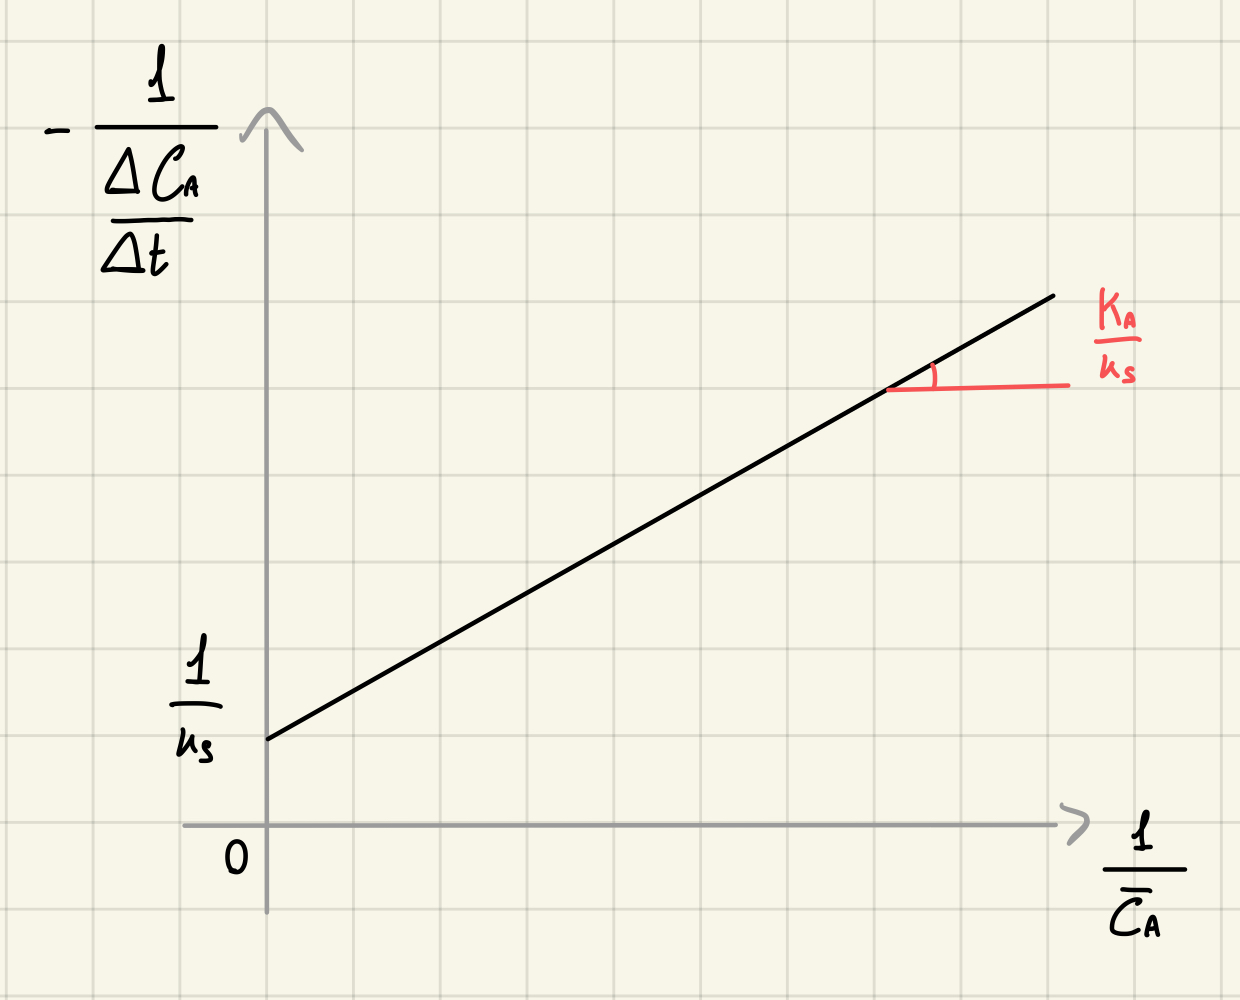 1
-
ΔCA
Δt
KA
ks
1
ks
0
1
C̅A